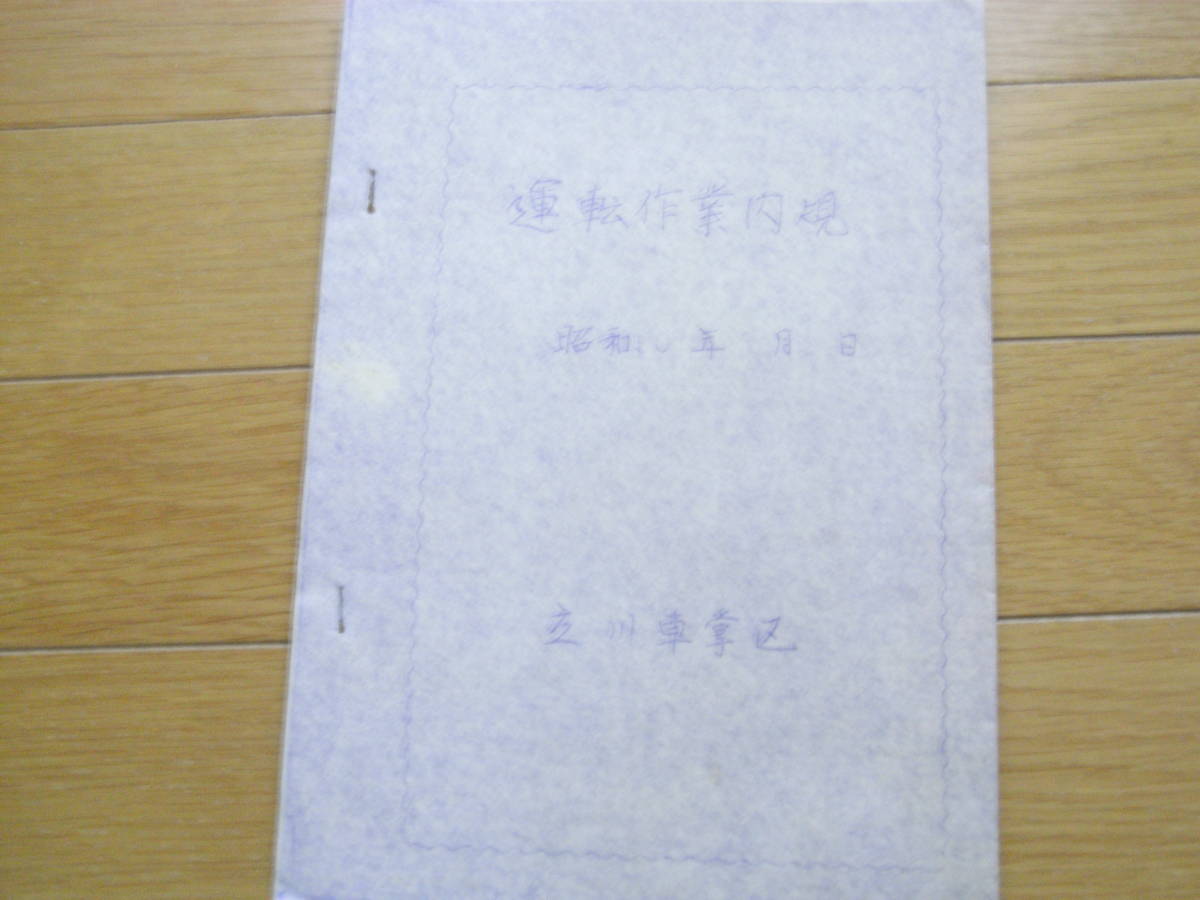 運転作業内規
昭和 年 月 日
立川車掌区